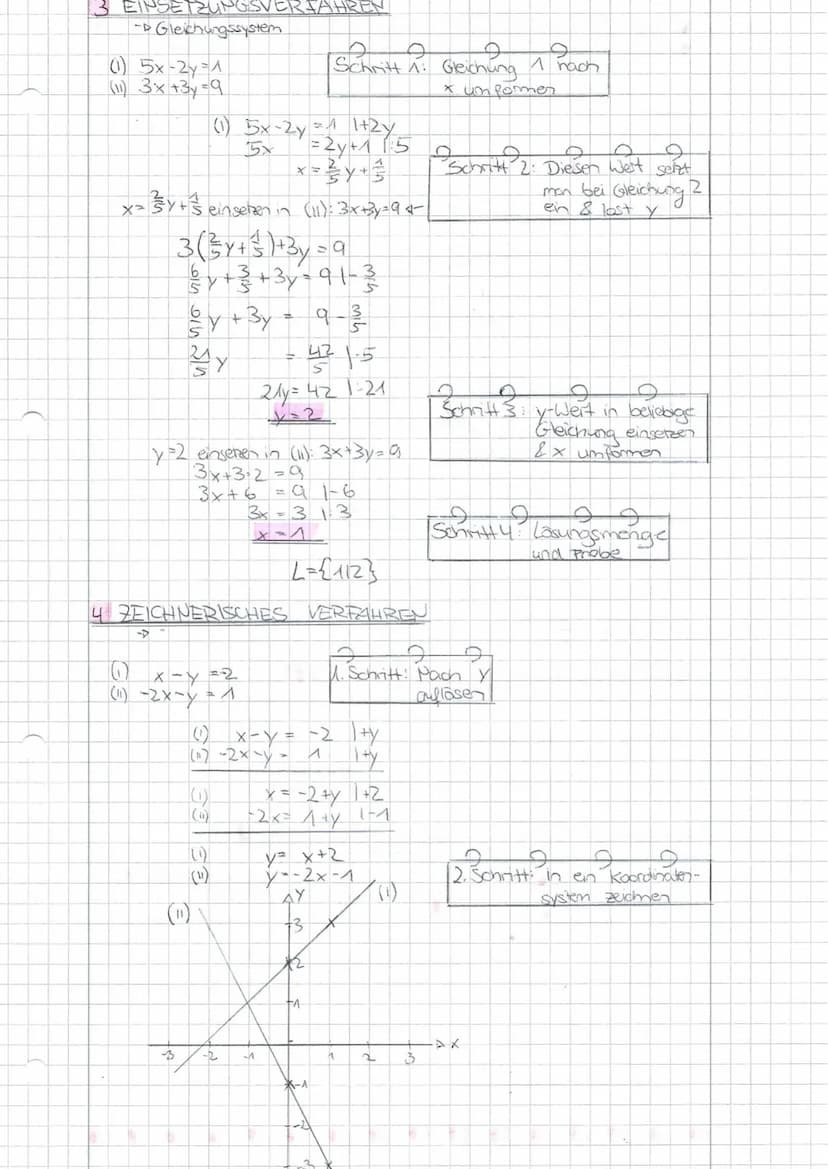 3 EINSETZUNGSVERFAHREN
→ Gleichungssystem
(I) 5x-2y=1
(II) 3x+3y=9
Schritt 1: Gleichung 1 nach
x umformen
(I) 5x-2y=1 |+2y
5x =2y+1 |:5
x=2/5y+1/5
Schritt 2: Diesen Wert setzt
man bei Gleichung 2
ein & löst y
x=2/5y+1/5 einsetzen in (II): 3x+3y=9 ←
3(2/5y+1/5)+3y=9
6/5y+3/5+3y=9 |-3/5
6/5y+3y= 9-3/5
21/5y = 42/5 |·5
21y=42 |:21
y=2
Schritt 3: y-Wert in beliebige
Gleichung einsetzen
& x umformen
y=2 einsetzen in (II): 3x+3y=9
3x+3·2=9
3x+6 =9 |-6
3x=3 |:3
x=1
Schritt 4: Lösungsmenge
und Probe
L={1|2}
4 ZEICHNERISCHES VERFAHREN
→
(I) x-y=-2
(II) -2x-y=1
1. Schritt: Nach y
auflösen
(I) x-y= -2 |+y
(II) -2x-y= 1 |+y
(I) x=-2+y |+2
(II) -2x= 1+y |-1
(I) y= x+2
(II) y=-2x-1
2. Schritt: in ein Koordinaten-
system zeichnen
y
(I)
(II)
3
2
1
-3 -2 -1 1 2 3 x
-1
-2
-3